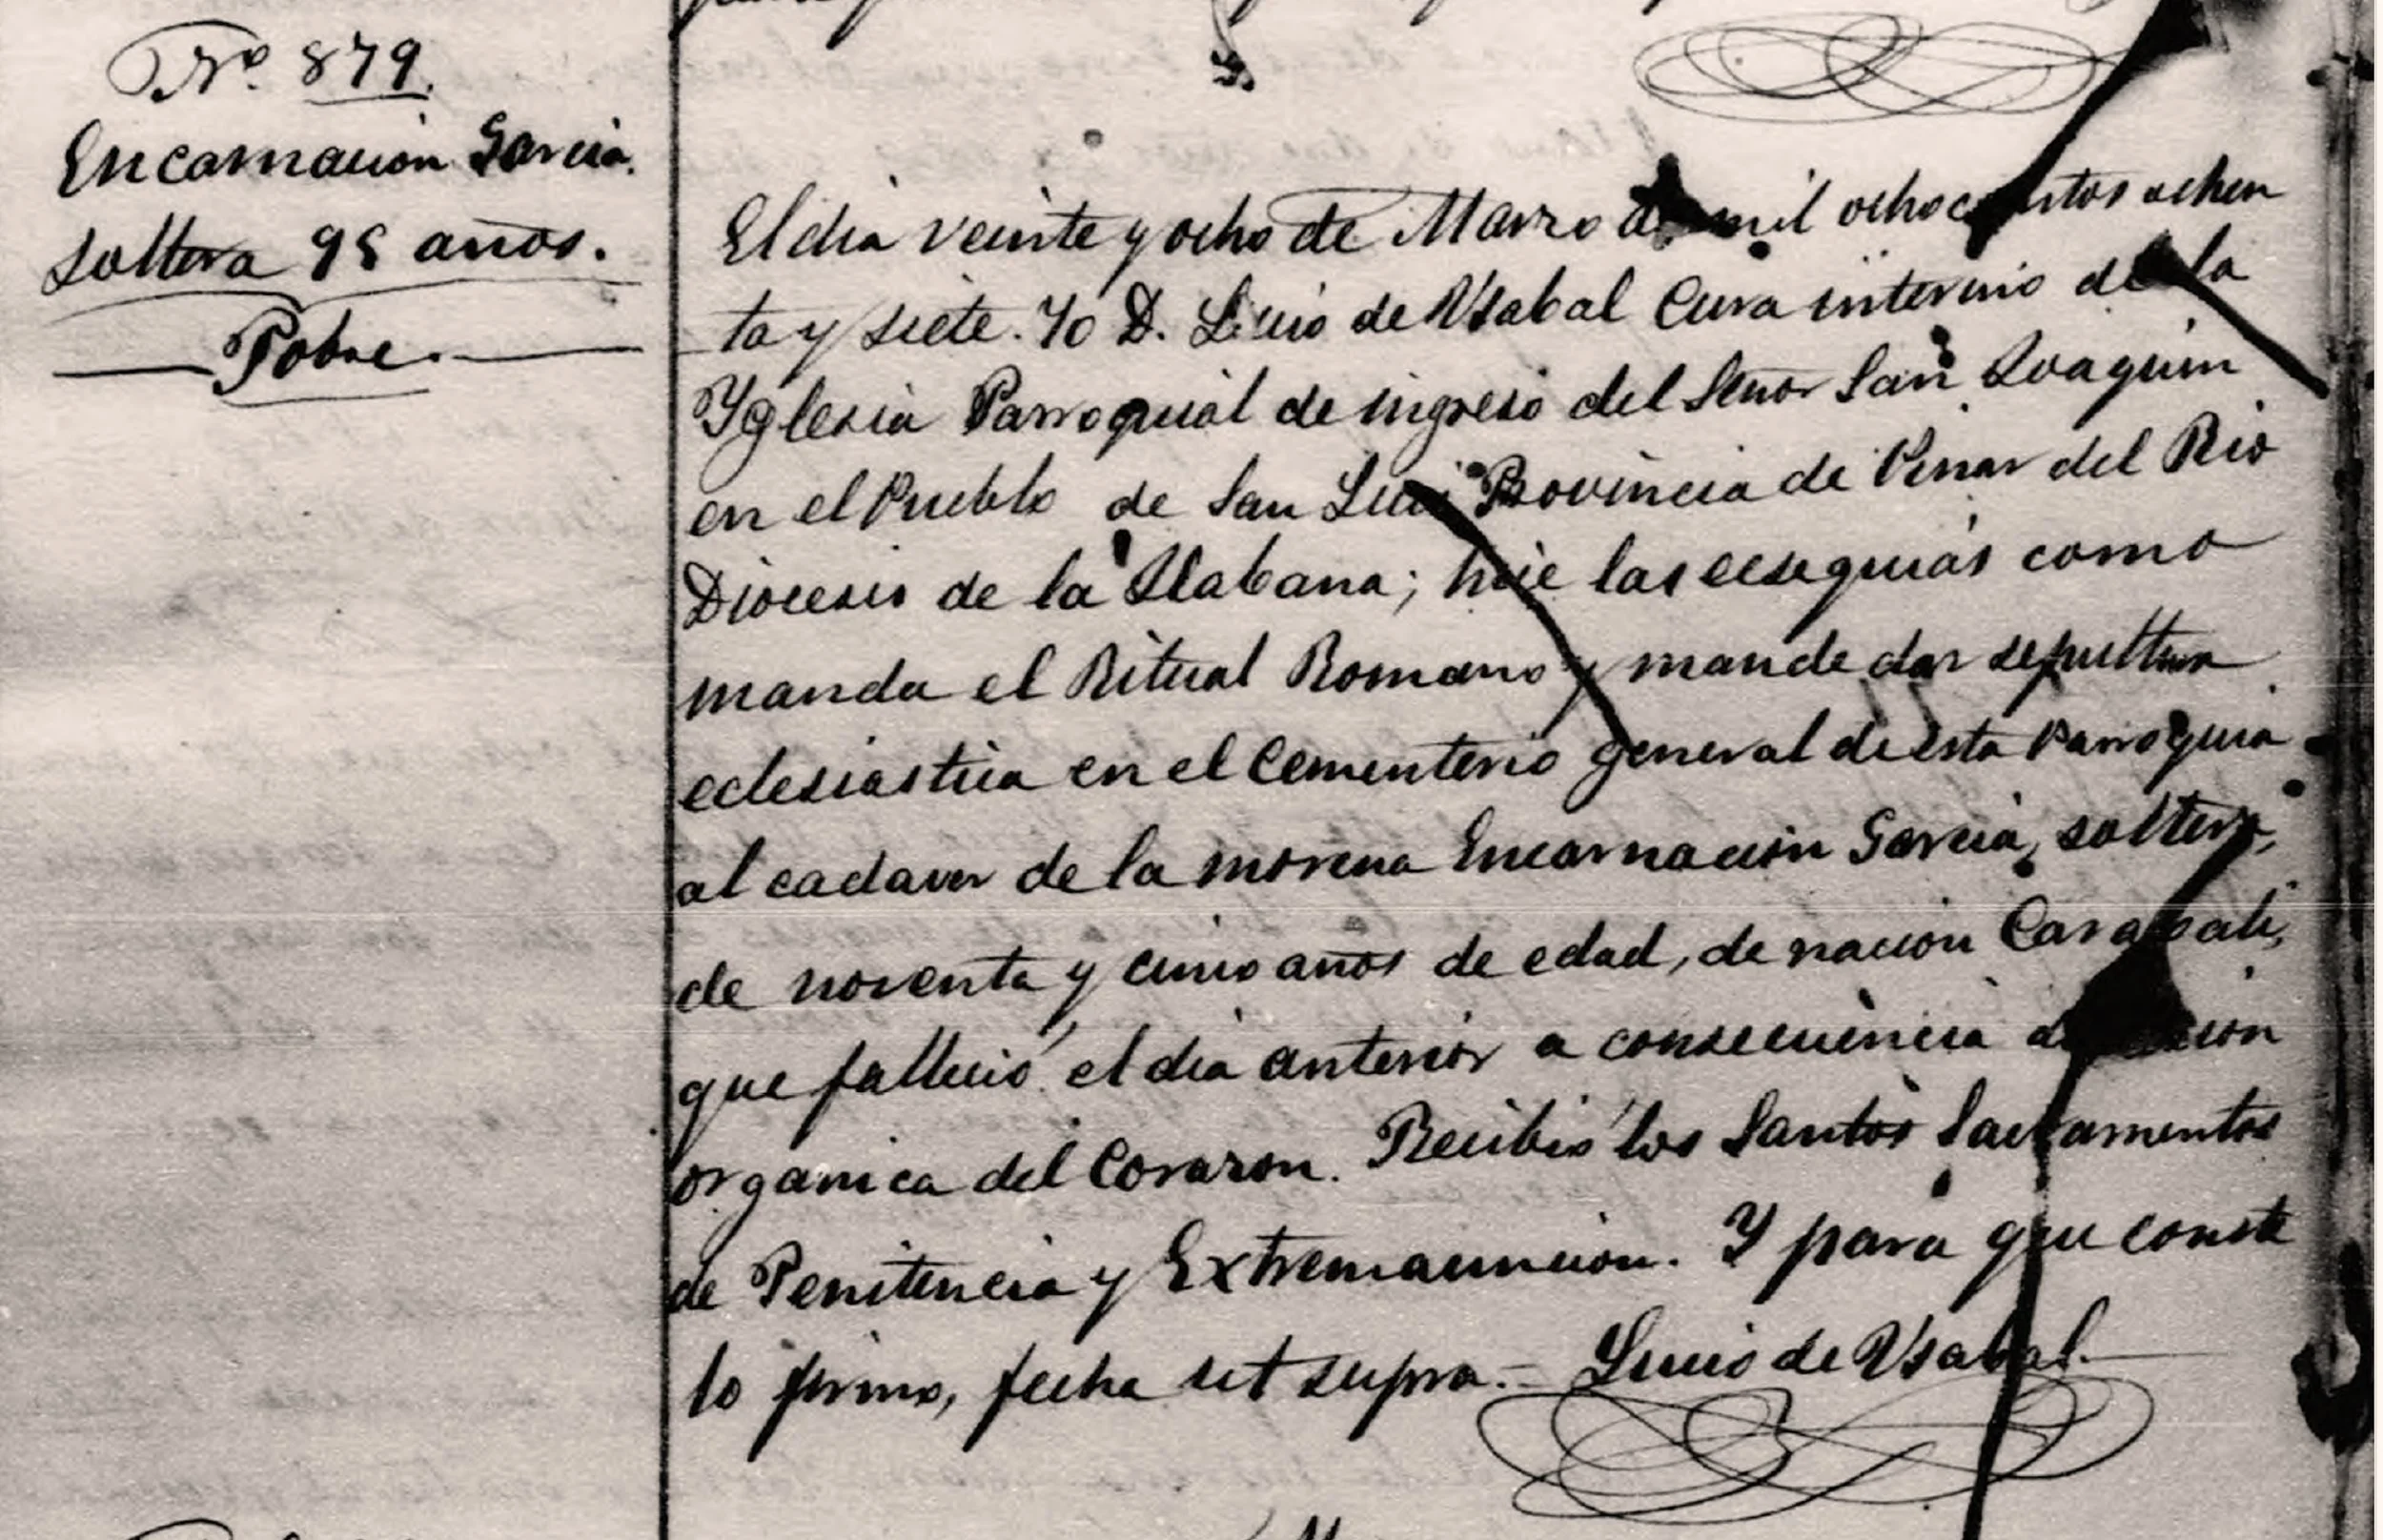 Nº 879.
Encarnacion Garcia.
soltera 95 años.
Pobre.
El dia veinte y ocho de Marzo de mil ochocientos ochen
ta y siete. Yo D. Lucio de Usabal Cura interino de la
Yglesia Parroquial de ingreso del Señor San Joaquin
en el Pueblo de San Luis Provincia de Pinar del Rio
Diocesis de la Habana; hice las ecsequias como
manda el Ritual Romano y mande dar sepultura
eclesiastica en el Cementerio general de esta Parroquia
al cadaver de la morena Encarnacion Garcia, soltera,
de noventa y cinco años de edad, de nacion Carabali,
que falleció el dia anterior a consecuencia de
organica del Corazon. Recibió los Santos Sacramentos
de Penitencia y Extremauncion. Y para que conste
lo firmo, fecha ut supra.- Lucio de Usabal.